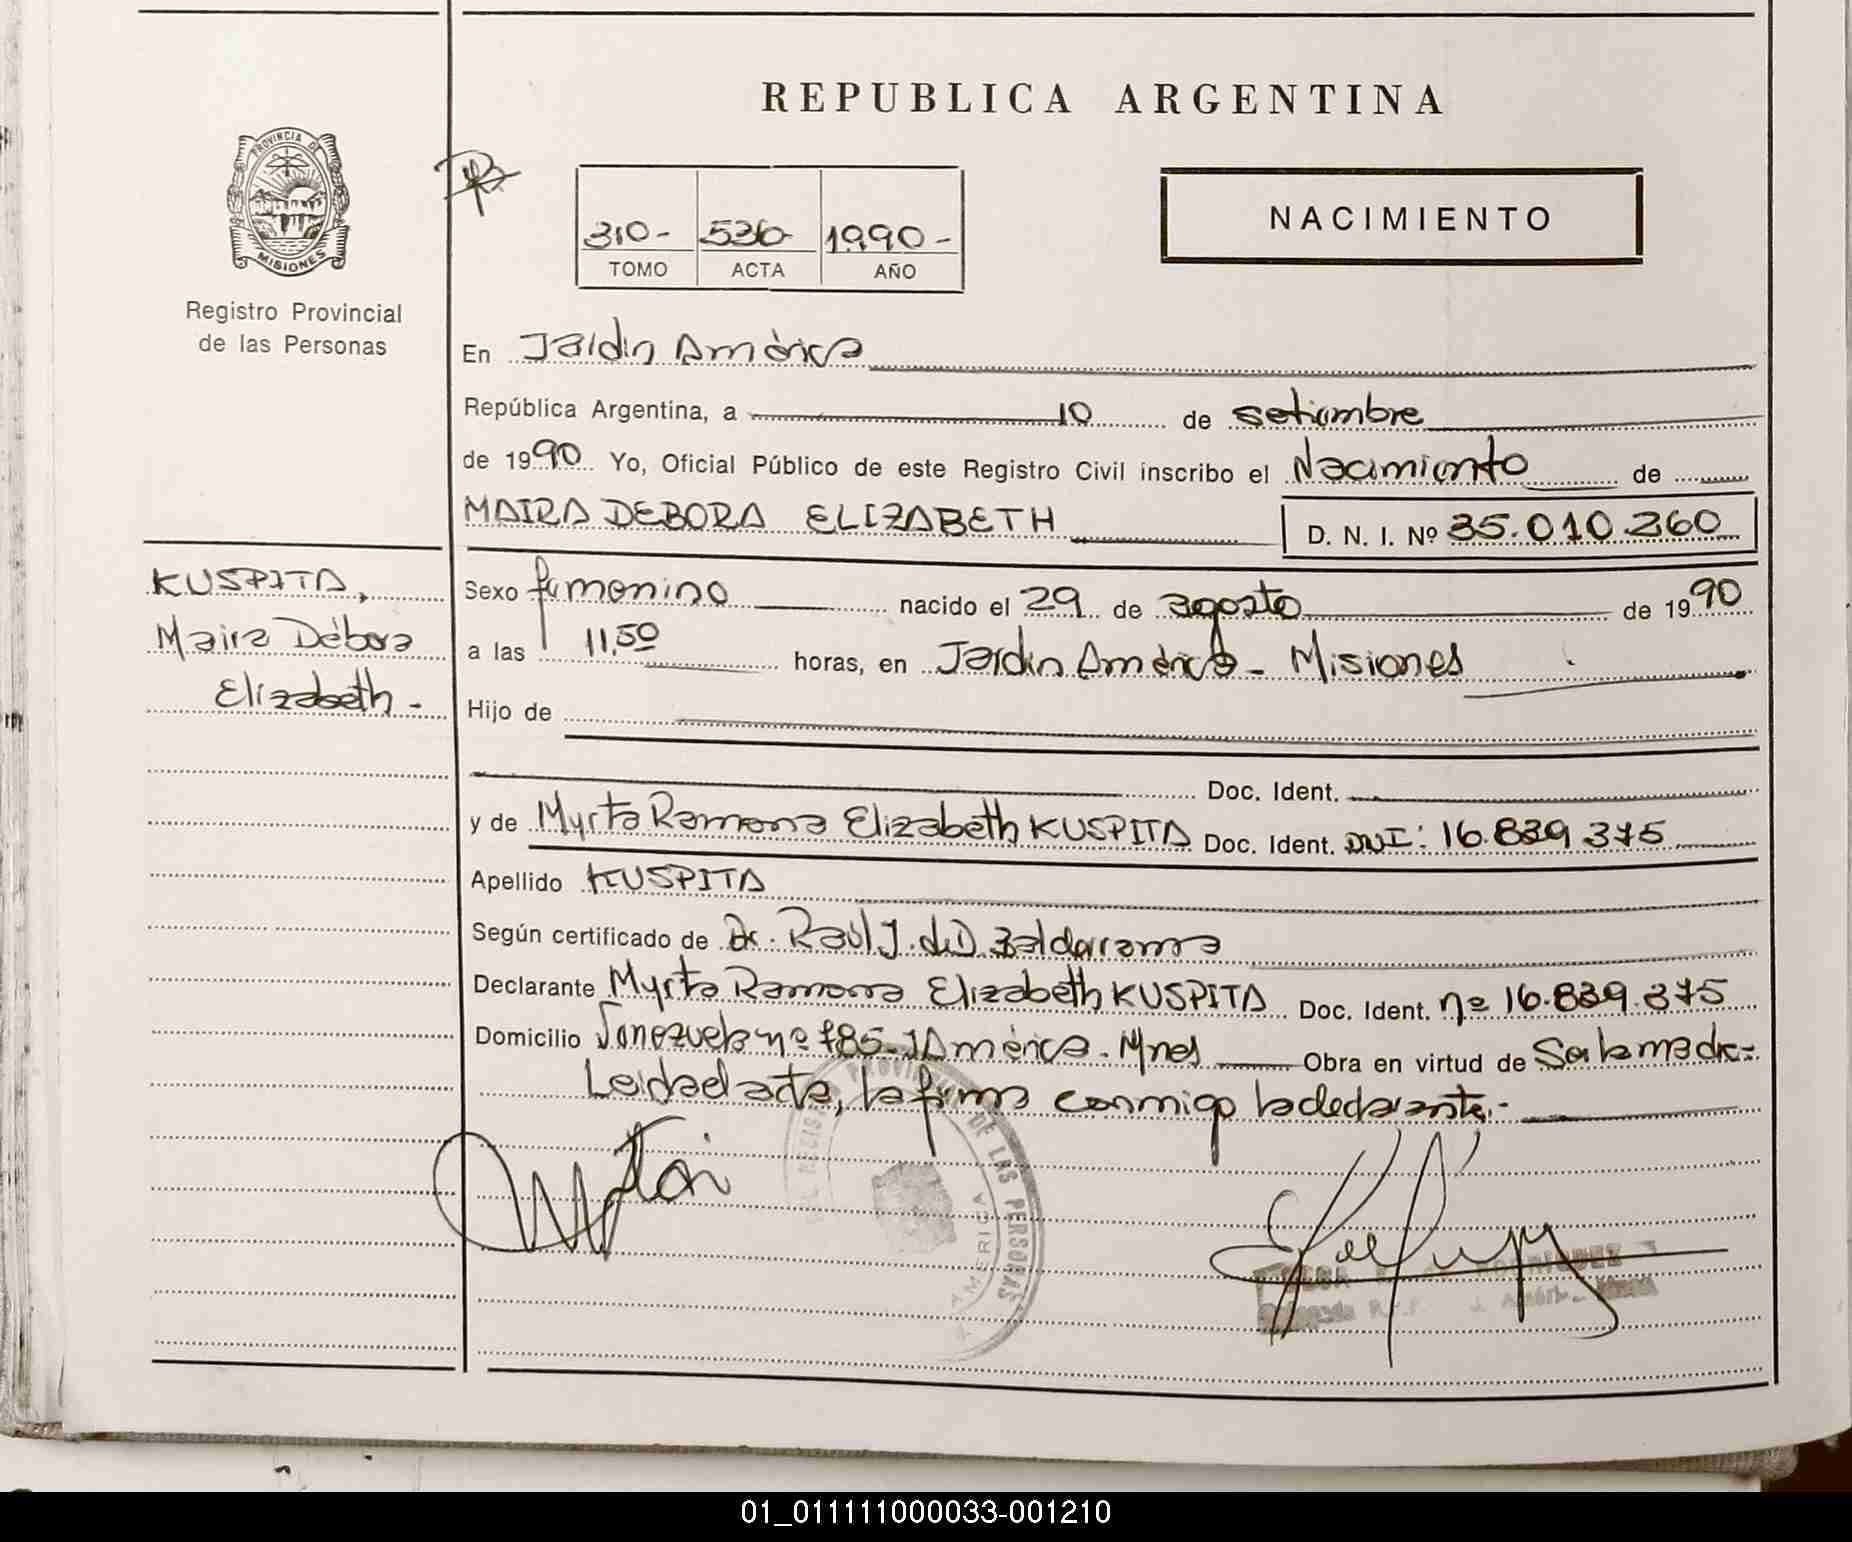 REPUBLICA ARGENTINA
PROVINCIA DE
MISIONES
Registro Provincial
de las Personas
NACIMIENTO
310- 536- 1990-
TOMO ACTA AÑO
En Jardin América
República Argentina, a 10 de setiembre
de 1990 Yo, Oficial Público de este Registro Civil inscribo el Nacimiento de
MAIRA DEBORA ELIZABETH D. N. I. Nº 35.010.260
KUSPITA,
Maira Débora
Elizabeth -
Sexo femenino nacido el 29 de agosto de 1990
a las 11,50 horas, en Jardin América - Misiones
Hijo de
Doc. Ident.
y de Myrta Ramona Elizabeth KUSPITA Doc. Ident. DNI: 16.839.375
Apellido KUSPITA
Según certificado de Dr. Raúl J. de D. Baldarama
Declarante Myrta Ramona Elizabeth KUSPITA Doc. Ident. nº 16.839.375
Domicilio Venezuela nº 785-J América - Mnes Obra en virtud de Ser la madre
Leida el acta, la firma conmigo la declarante.-
PROVINCIAL DE LAS PERSONAS
AMERICA
01_011111000033-001210